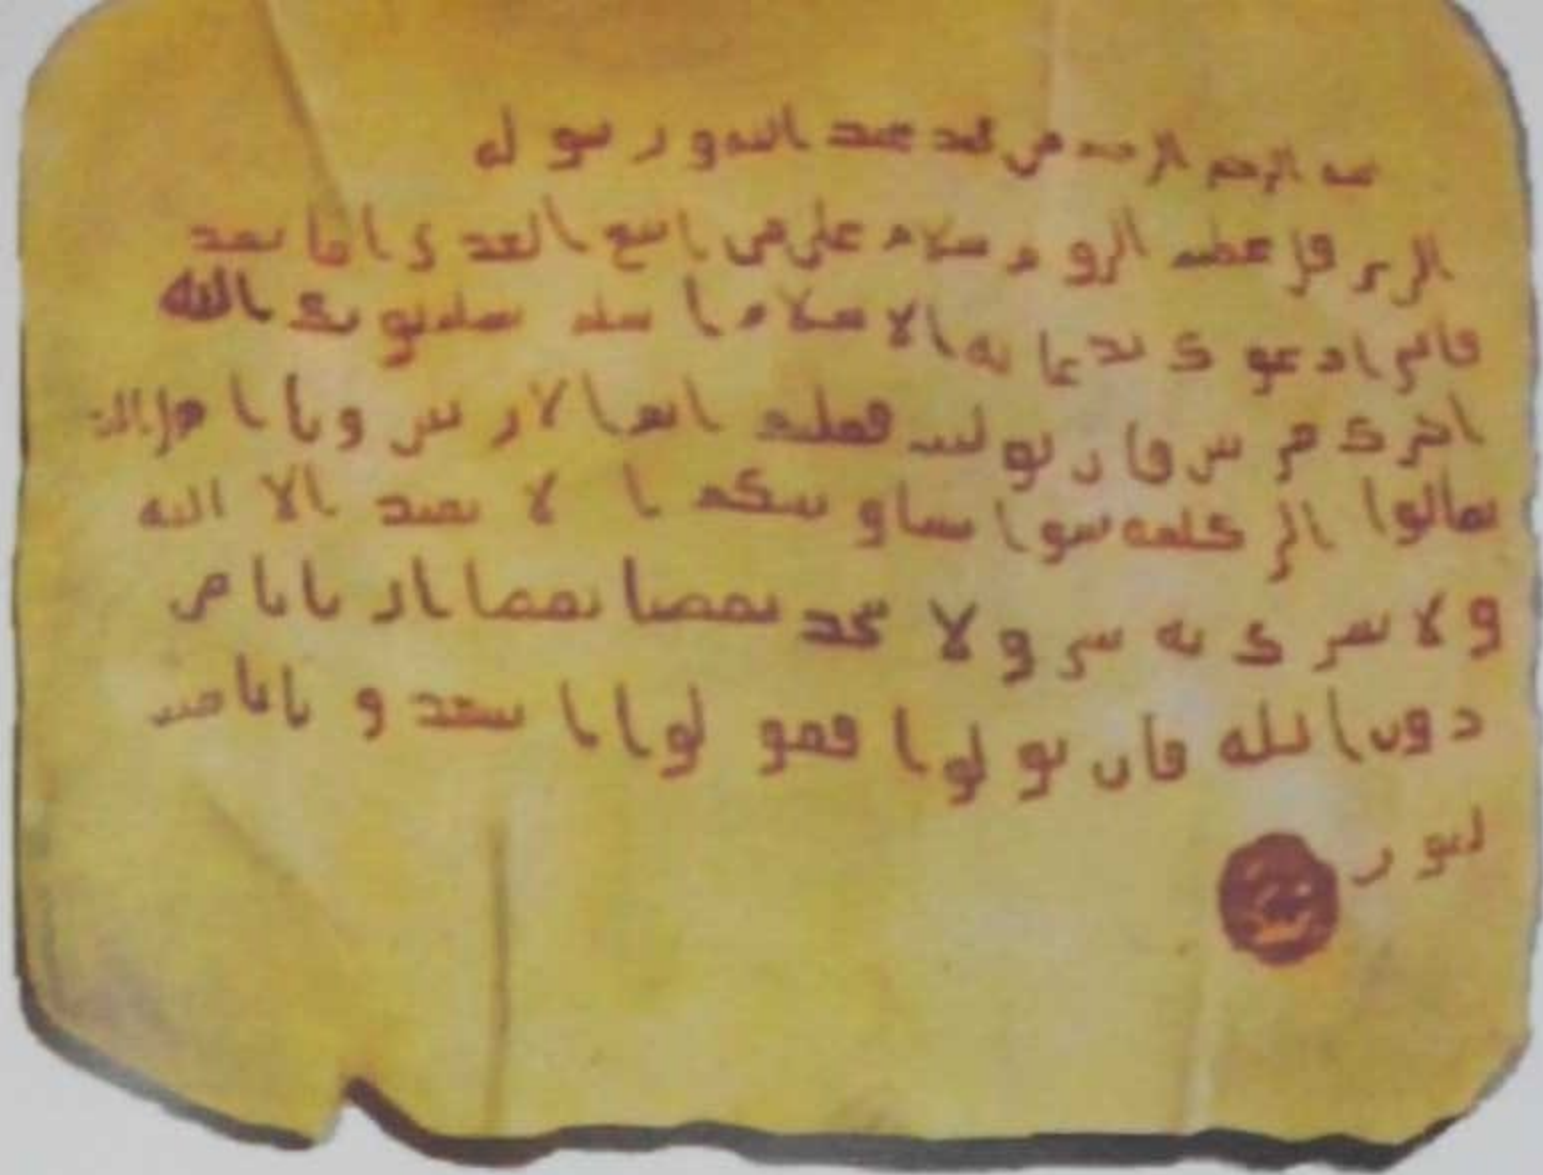 الرحمن الرحيم من محمد عبد الله و رسو ل
الى هر قل عظيم الرو م سلام على من اتبع الهد ى اما بعد
فانى اد عو ك بد عا يه الا سلام ا سلم تسلم يو تك الله
اجر ك مر تين فا ن تو ليت فعليك اثم الا ر يس و يا ا هل الكتب
تعالوا الى كلمه سوا بيننا و بينكم ا لا نعبد الا الله
و لا نشر ك به شي و لا يتخذ بعضنا بعضا ار بابا من
دون الله فان تو لوا فقو لوا ا شهد و ا بانا مسلمو ن